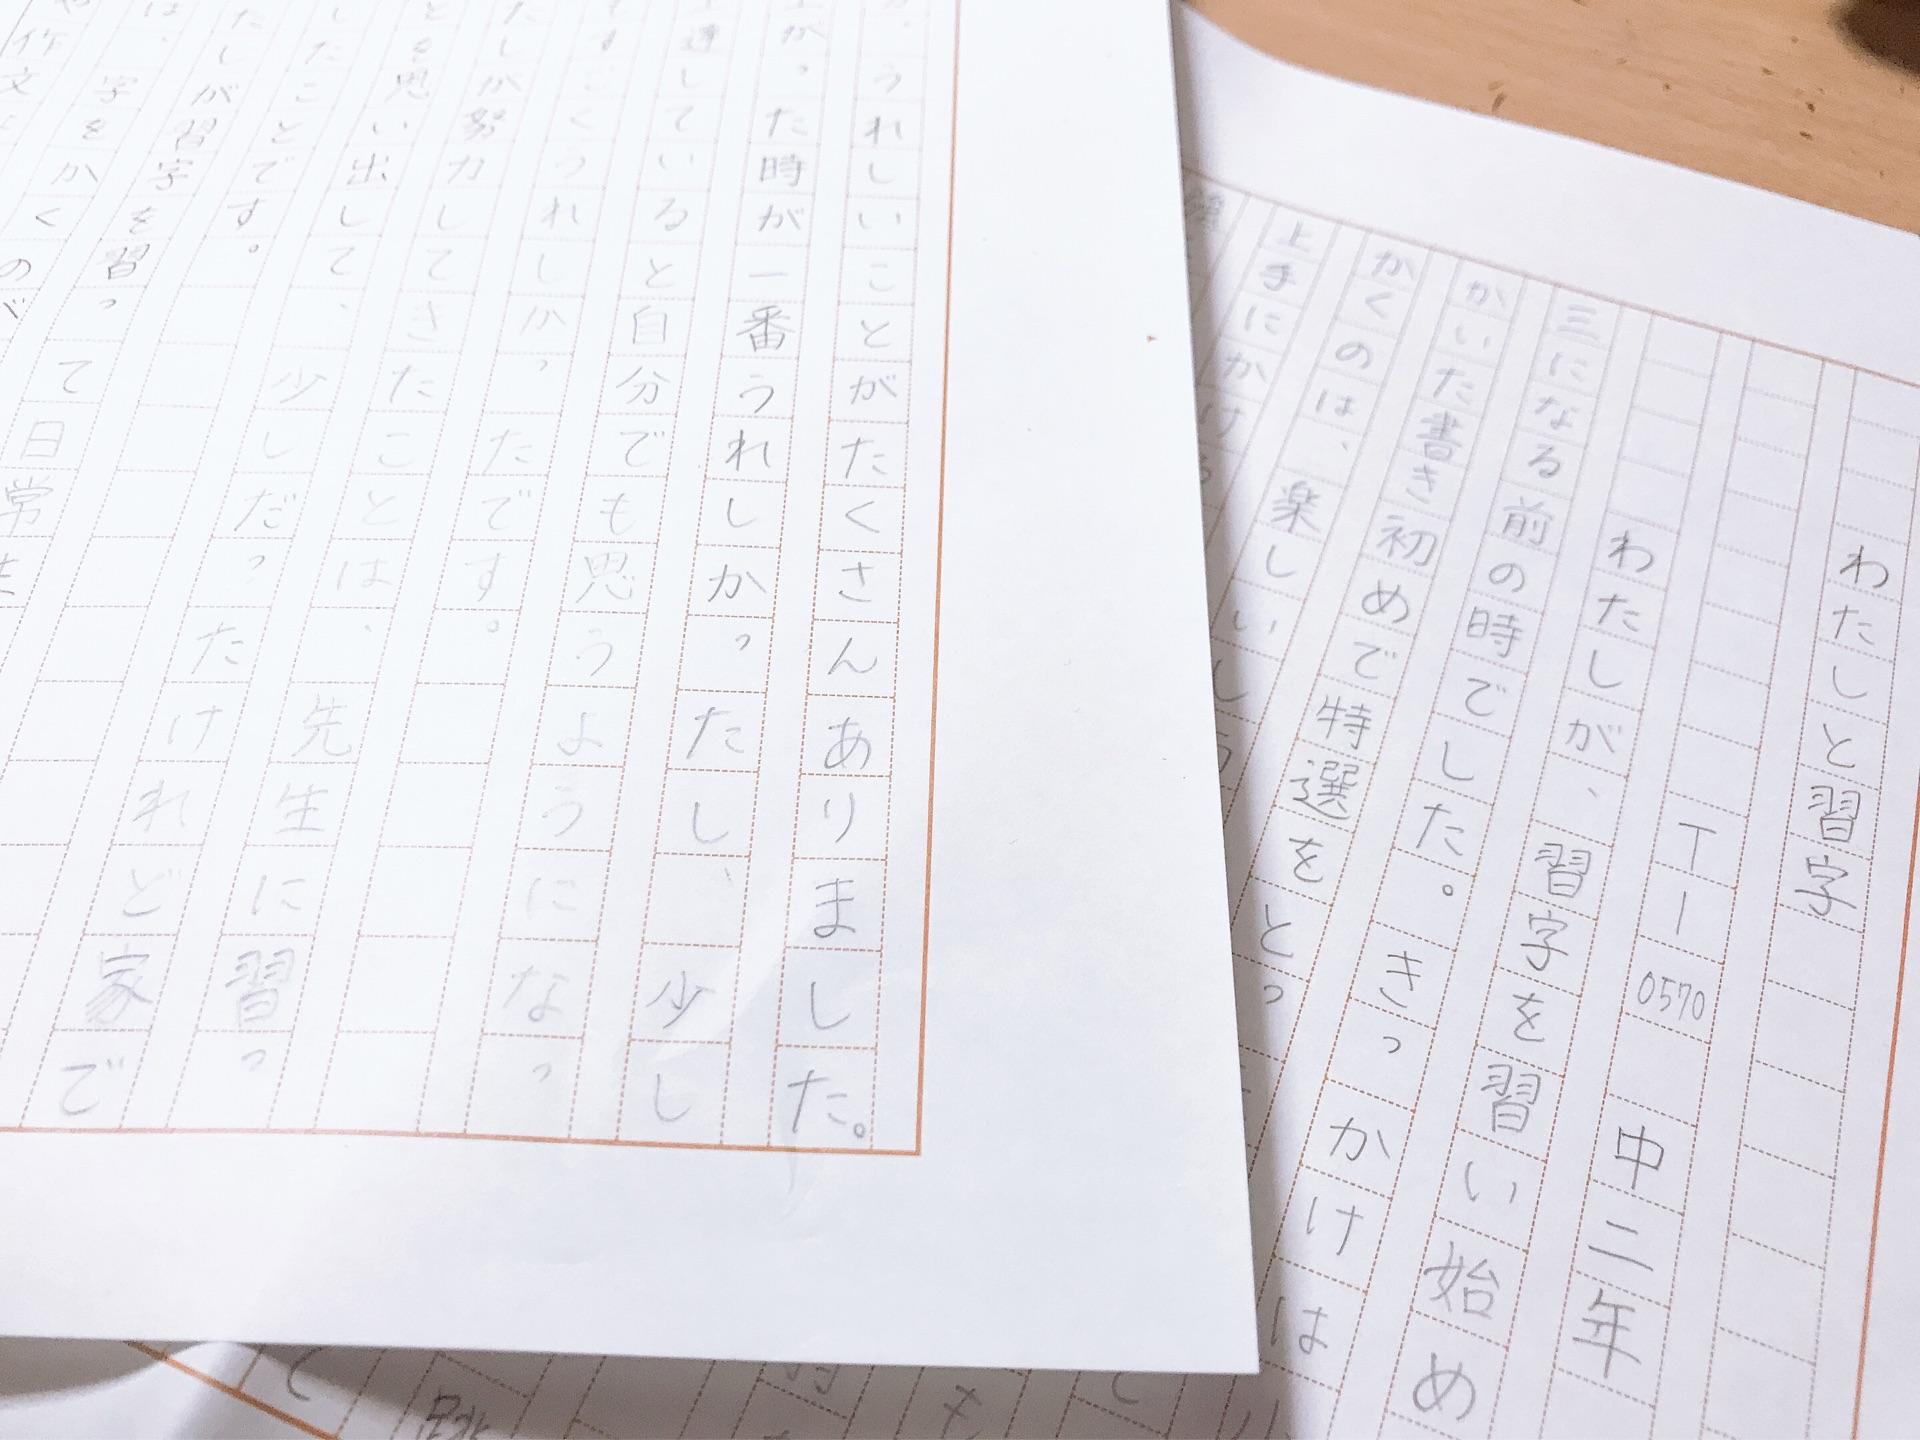 わたしと習字
Tー0570 中二年
わたしが、習字を習い始め
三になる前の時でした。きっかけは
かいた書き初めで特選をとっ
かくのは、楽しいし
上手にかける
うれしいことがたくさんありました。
がった時が一番うれしかったし、少し
達していると自分でも思うようになっ
すごくうれしかったです。
たしが努力してきたことは、先生に習っ
とを思い出して、少しだったけれど家で
したことです。
たしが習字を習って日常
は、字をかくのが
作文